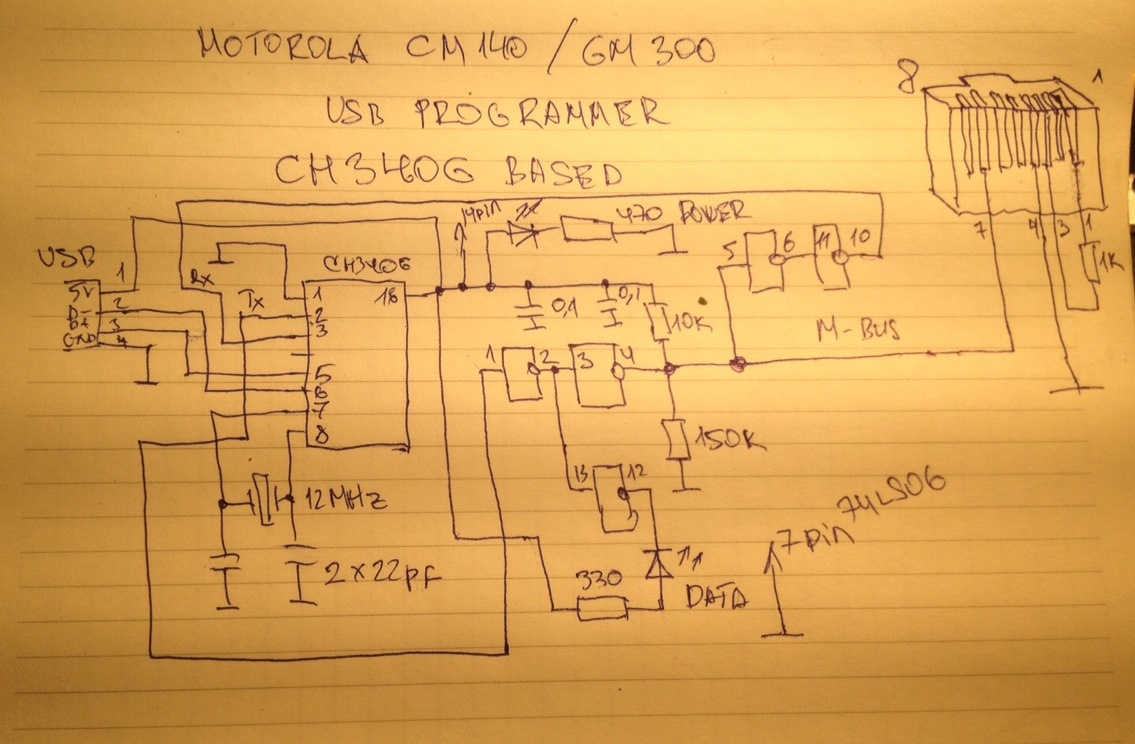 MOTOROLA CM140 / GM300
8 1
USB PROGRAMMER
CH340G BASED
14pin 470 POWER
USB 1 Rx CH340G 5 6 11 10 7 4 3 1
5V 2 Tx 1 16 1K
D- 3 2 0,1 0,1 10K
D+ 4 3 M-BUS
GND 1 2 3 4
5
6
7 150K
8
13 12
12MHZ 74LS06
7pin
2x22pF 330
DATA